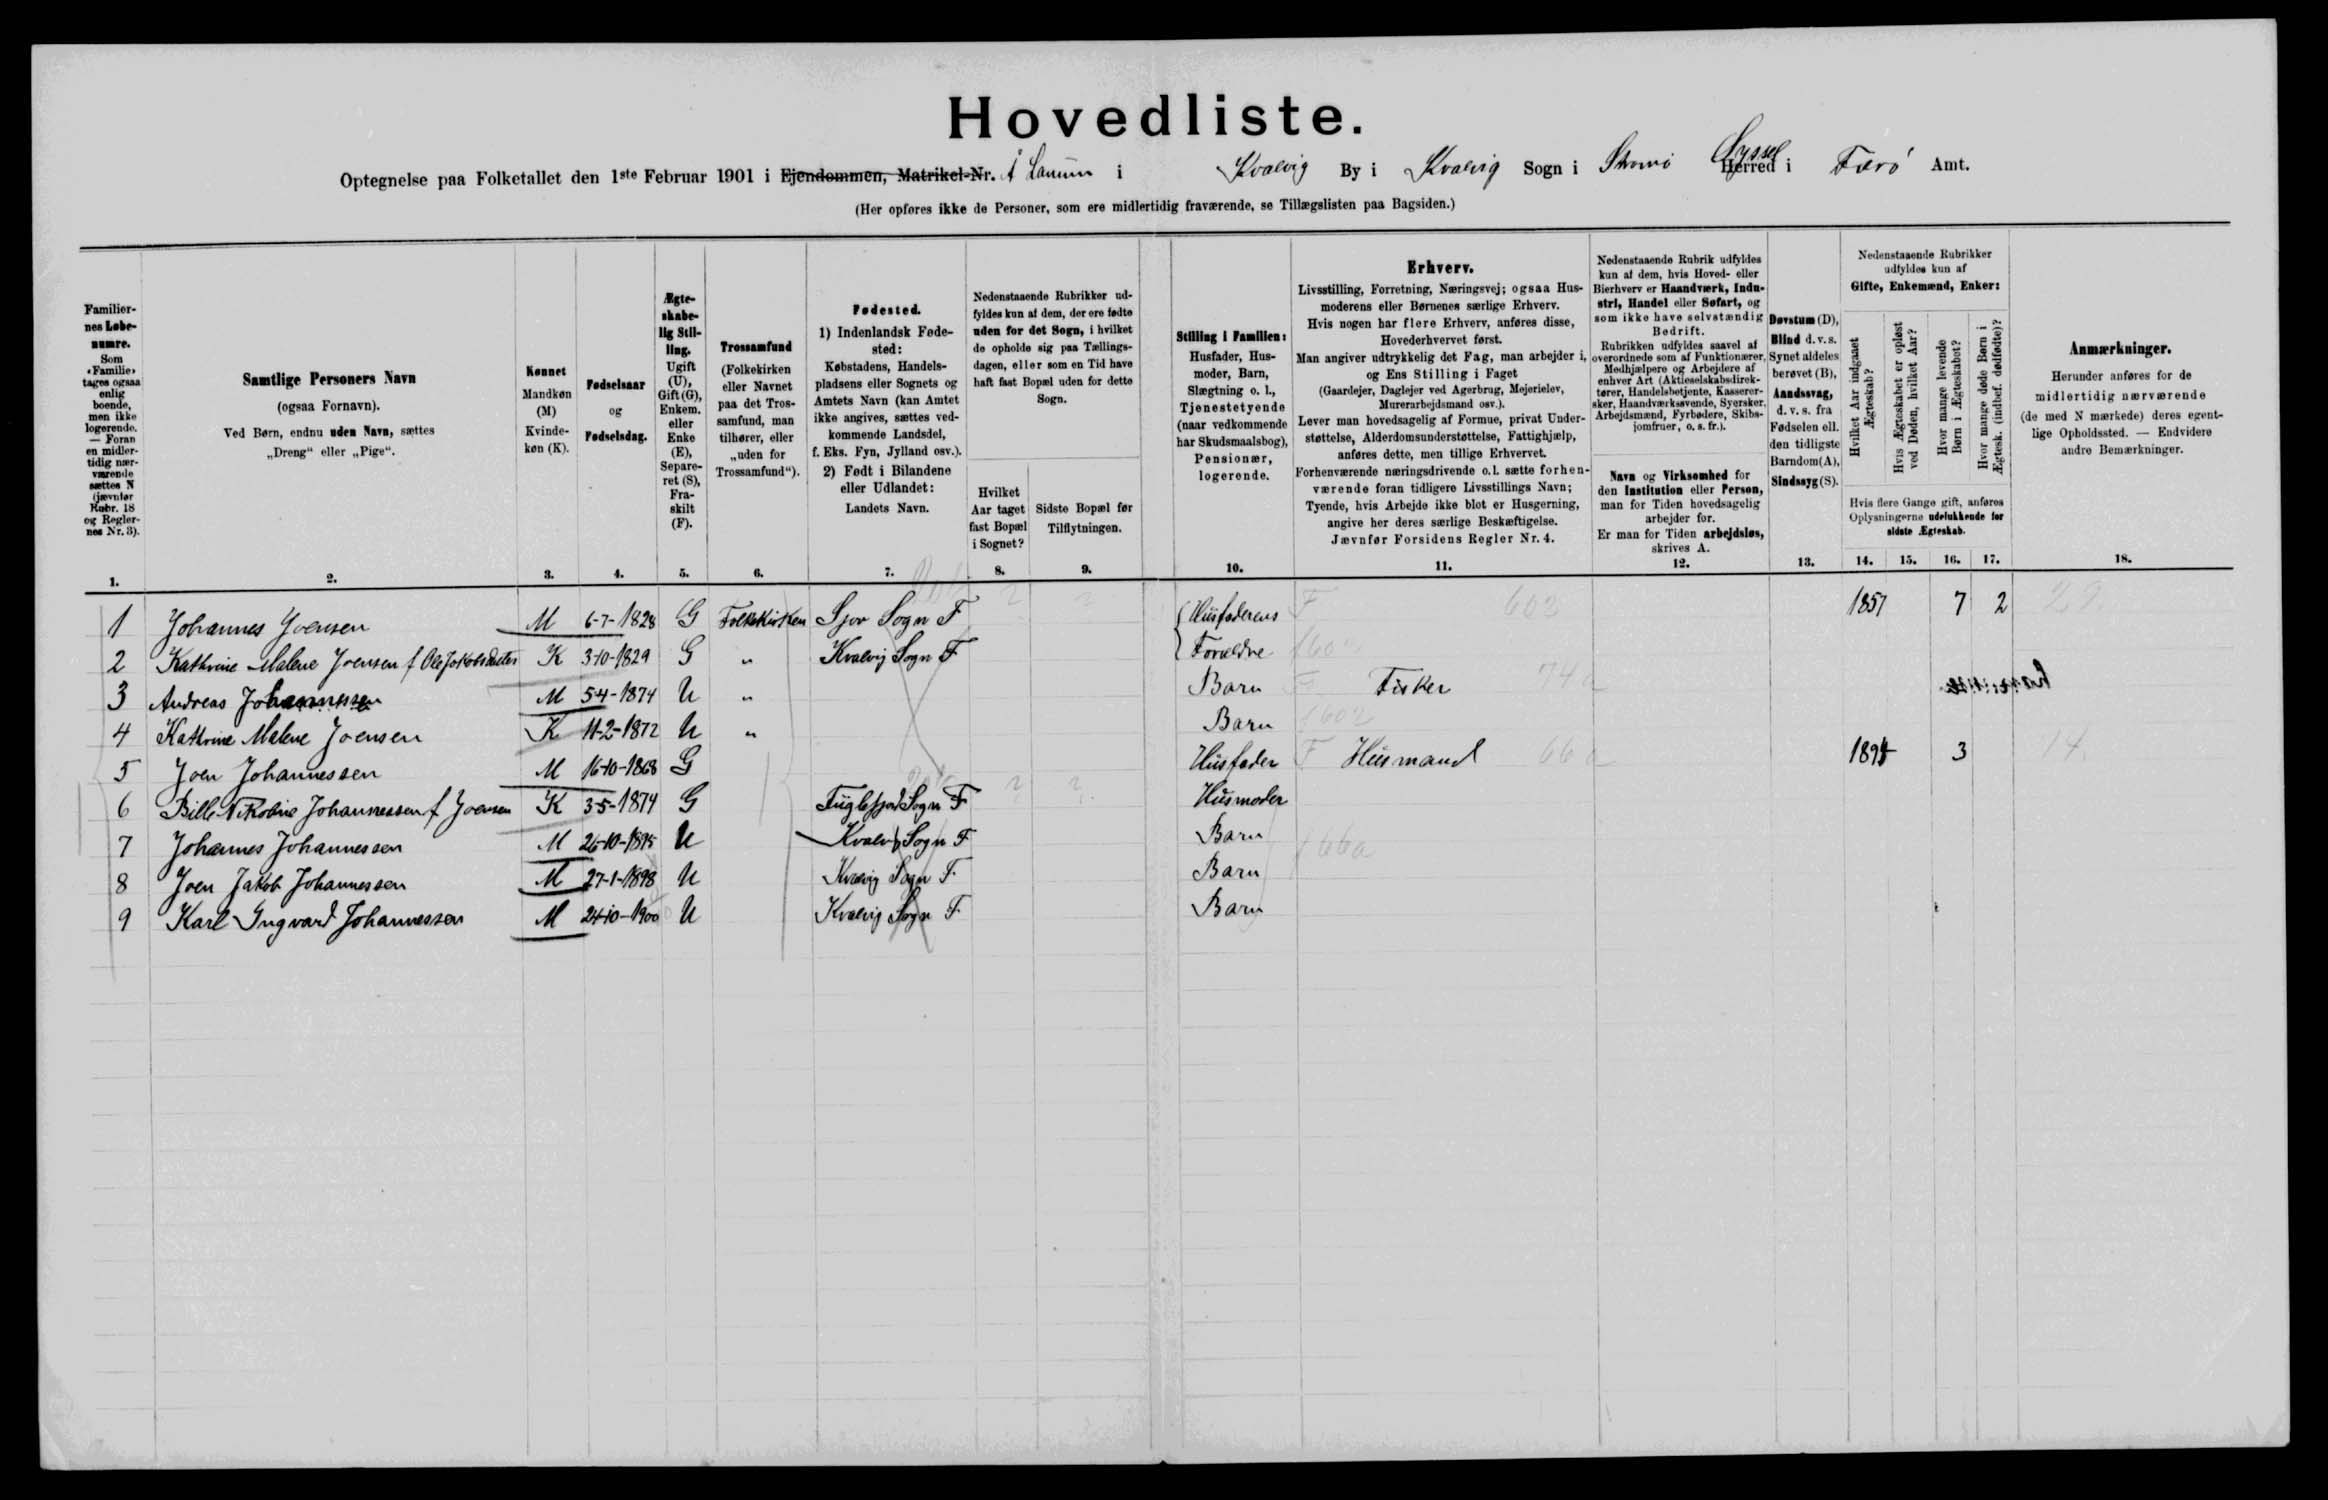 Hovedliste.
Optegnelse paa Folketallet den 1ste Februar 1901 i Ejendommen, Matrikel-Nr. Å Lanum i Kvalvig By i Kvalvig Sogn i Strømø Herred Syssel i Færø Amt.
(Her opføres ikke de Personer, som ere midlertidig fraværende, se Tillægslisten paa Bagsiden.)
Familiernes Løbenumre.
Som «Familie» tages ogsaa enlig boende, men ikke logerende. — Foran en midlertidig nærværende sættes N (jævnfør Rubr. 18 og Reglernes Nr. 3).
1.
Samtlige Personers Navn
(ogsaa Fornavn).
Ved Børn, endnu uden Navn, sættes
„Dreng" eller „Pige".
2.
Kønnet
Mandkøn (M) Kvindekøn (K).
3.
Fødselsaar
og
Fødselsdag.
4.
Ægteskabelig Stilling.
Ugift (U), Gift (G), Enkem. eller Enke (E), Separeret (S), Fraskilt (F).
5.
Trossamfund
(Folkekirken eller Navnet paa det Trossamfund, man tilhører, eller „uden for Trossamfund").
6.
Fødested.
1) Indenlandsk Fødested:
Købstadens, Handelspladsens eller Sognets og Amtets Navn (kan Amtet ikke angives, sættes vedkommende Landsdel, f. Eks. Fyn, Jylland osv.).
2) Født i Bilandene eller Udlandet:
Landets Navn.
7.
Nedenstaaende Rubrikker udfyldes kun af dem, der ere fødte uden for det Sogn, i hvilket de opholde sig paa Tællingsdagen, eller som en Tid have haft fast Bopæl uden for dette Sogn.
Hvilket Aar taget fast Bopæl i Sognet?
8.
Sidste Bopæl før Tilflytningen.
9.
Stilling i Familien:
Husfader, Husmoder, Barn, Slægtning o. l., Tjenestetyende (naar vedkommende har Skudsmaalsbog), Pensionær, logerende.
10.
Erhverv.
Livsstilling, Forretning, Næringsvej; ogsaa Husmoderens eller Børnenes særlige Erhverv.
Hvis nogen har flere Erhverv, anføres disse, Hovederhvervet først.
Man angiver udtrykkelig det Fag, man arbejder i, og Ens Stilling i Faget
(Gaardejer, Daglejer ved Agerbrug, Mejerielev, Murerarbejdsmand osv.).
Lever man hovedsagelig af Formue, privat Understøttelse, Alderdomsunderstøttelse, Fattighjælp, anføres dette, men tillige Erhvervet.
Forhenværende næringsdrivende o. l. sætte forhenværende foran tidligere Livsstillings Navn;
Tyende, hvis Arbejde ikke blot er Husgerning, angive her deres særlige Beskæftigelse.
Jævnfør Forsidens Regler Nr. 4.
11.
Nedenstaaende Rubrik udfyldes kun af dem, hvis Hoved- eller Bierhverv er Haandværk, Industri, Handel eller Søfart, og som ikke have selvstændig Bedrift.
Rubrikken udfyldes saavel af overordnede som af Funktionærer, Medhjælpere og Arbejdere af enhver Art (Aktieselskabsdirektører, Handelsbetjente, Kasserersker, Haandværkssvende, Syersker, Arbejdsmænd, Fyrbødere, Skibsjomfruer, o. s. fr.).
Navn og Virksomhed for den Institution eller Person, man for Tiden hovedsagelig arbejder for.
Er man for Tiden arbejdsløs, skrives A.
12.
Døvstum (D), Blind d. v. s. Synet aldeles berøvet (B), Aandssvag, d. v. s. fra Fødselen ell. den tidligste Barndom (A), Sindssyg (S).
13.
Nedenstaaende Rubrikker udfyldes kun af
Gifte, Enkemænd, Enker:
Hvilket Aar indgaaet Ægteskab?
Hvis Ægteskabet er opløst ved Døden, hvilket Aar?
Hvor mange levende Børn i Ægteskabet?
Hvor mange døde Børn i Ægtesk. (indbef. dødfødte)?
Hvis flere Gange gift, anføres Oplysningerne udelukkende for sidste Ægteskab.
14. 15. 16. 17.
Anmærkninger.
Herunder anføres for de midlertidig nærværende (de med N mærkede) deres egentlige Opholdssted. — Endvidere andre Bemærkninger.
18.
1 Johannes Joensen M 6-7-1828 G Folkekirken Sjov Sogn F ? ? Husfaderens F 602 1857 7 2 29
2 Kathrine Malene Joensen f Ole Jakobs datter K 3-10-1829 G „ Kvalvig Sogn F Forældre 602
3 Andreas Johannessen M 5-4-1874 U „ Barn F Fisker 74 a
4 Kathrine Malene Joensen K 11-2-1872 U „ Barn 602
5 Joen Johannessen M 16-10-1868 G Husfader F Husmand 66 a 1894 3 14
6 Bille Nikoline Johannessen f Joensen K 3-5-1874 G Fuglefjord Sogn F ? ? Husmoder
7 Johannes Johannessen M 26-10-1895 U Kvalvig Sogn F Barn 66a
8 Joen Jakob Johannessen M 27-1-1898 U Kvalvig Sogn F Barn
9 Karl Ingvard Johannessen M 24-10-1900 U Kvalvig Sogn F Barn